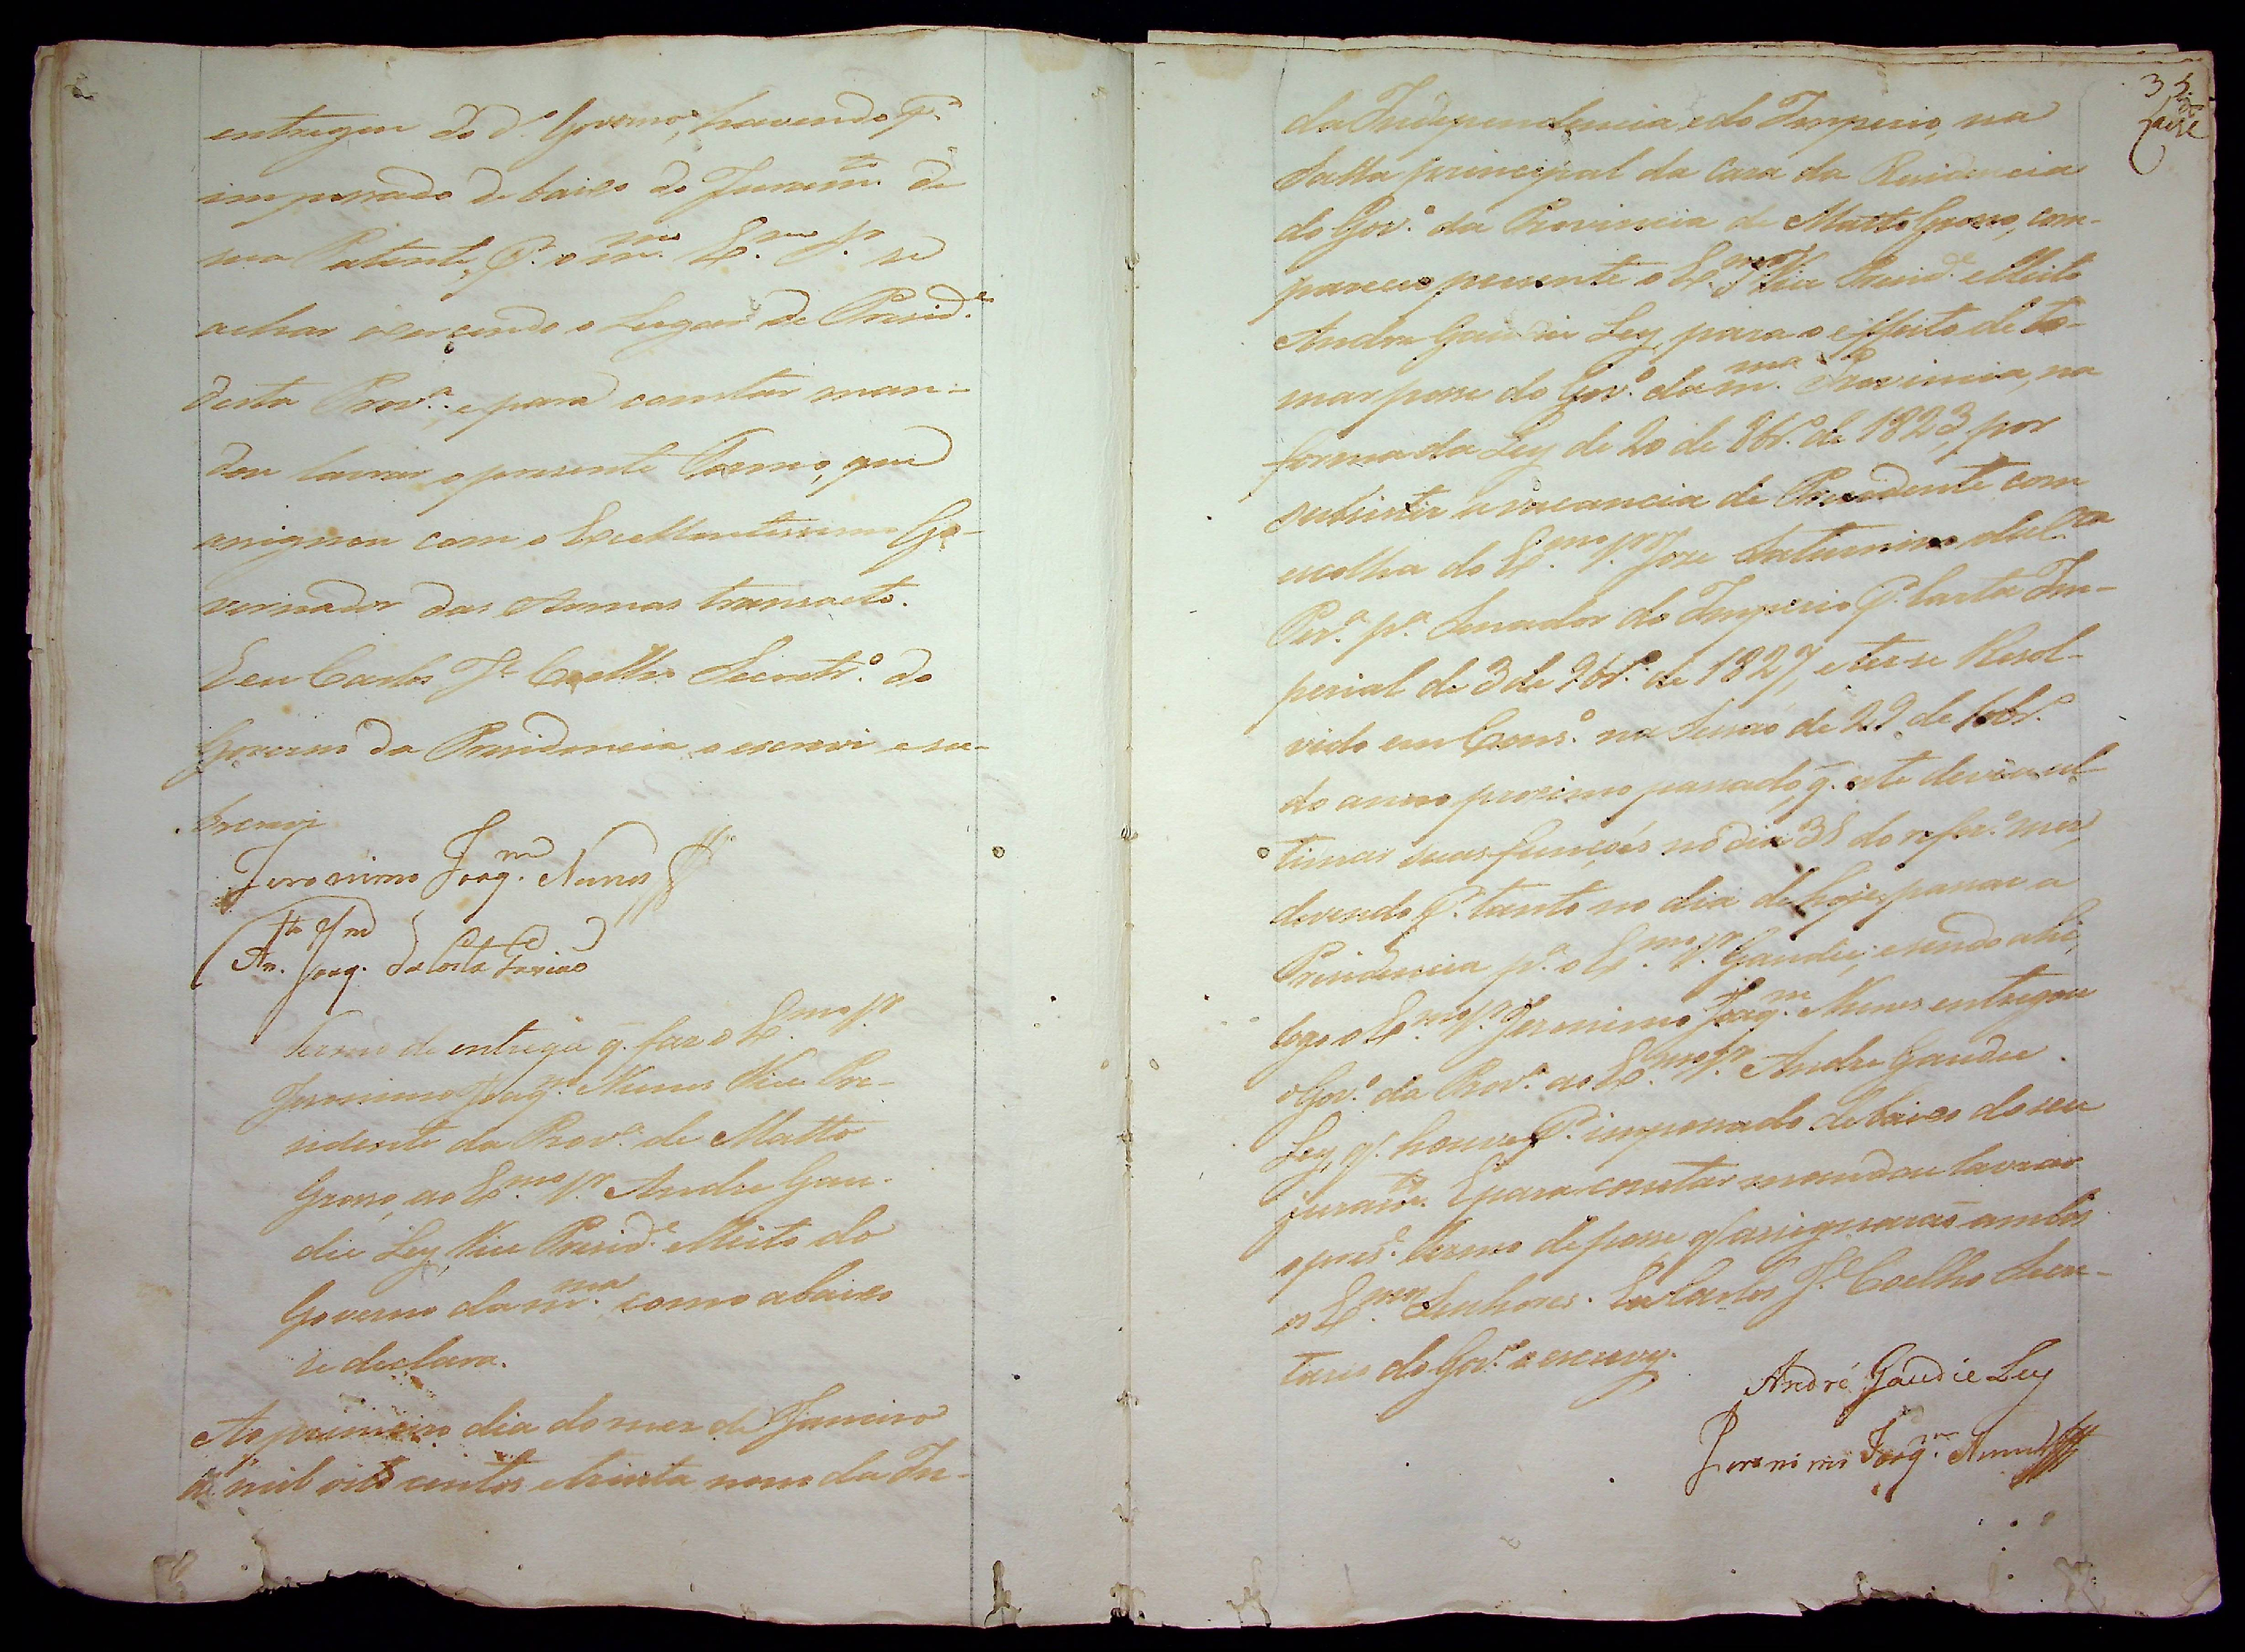 entregou do d.º Governo, havendo P.r
impossado debaixo do Juram.to de
sua Patente, P.r o m.mo Ex.mo Sr. se
achar exercendo o Lugar de Presid.e
desta Prov.a, e para constar man-
dou lavrar o presente Termo, que
assignou com o Excellentissimo Go-
vernador das Armas transacto.
E eu Carlos J.e Coelho Secretr.º do
Governo da Presidencia o escrevi e su-
bscrevi
Jeronimo Joaq.m Nunes
An.to Joaq.m da Costa Gavião
Termo de entrega q. faz o Ex.mo Sr.
Jeronimo Joaq.m Nunes Vice Pre-
sidente da Prov.a de Matto
Grosso, ao Ex.mo Sr. Andre Gau-
die Ley, Vice Presid.e elleito do
Governo da m.ma como abaixo
se declara.
Ao primeiro dia do mez de Janeiro
de mil oito centos e trinta nono da In-
35
da Independencia e do Imperio, na
Salla principal da Caza da Residencia
do Gov.º da Provincia de Matto Grosso, com-
pareceo presente o Ex.mo Sr. Vice Presid.e elleito
Andre Gaudie Ley, para o effeito de to-
mar posse do Gov.º da m.ma Provincia, na
forma da Ley de 20 de 8br.º de 1823, por
subsistir a vacancia de Presidente com
escolha do Ex.mo Sr. Joze Saturnino da C.ta
Per.a p.a Senador do Imperio P.r Carta Im-
perial de 3 de 9br.º de 1827, e ter-se Resol-
vido em Cons.º na Sessão de 22 de
do anno proximo passado, q. este devia ul-
timar suas funções no dia 31 do refer.º mez,
devendo P.r tanto no dia de hoje passar a
Presidencia p.a o Ex.mo Sr. Gaudie; e sendo ahi,
logo o Ex.mo Sr. Jeronimo Joaq.m Nunes entregou
o Gov.º da Prov.a ao Ex.mo Sr. Andre Gaudie
Ley, q. houve P.r impossado debaixo do seu
juram.to. E para constar mandou lavrar
o pres.e termo de posse q. assignarão ambos
os Ex.mos Senhores. Eu Carlos J.e Coelho Secre-
tario do Gov.º o escrevy.
André Gaudie Ley
Jeronimo Joaq.m Nunes